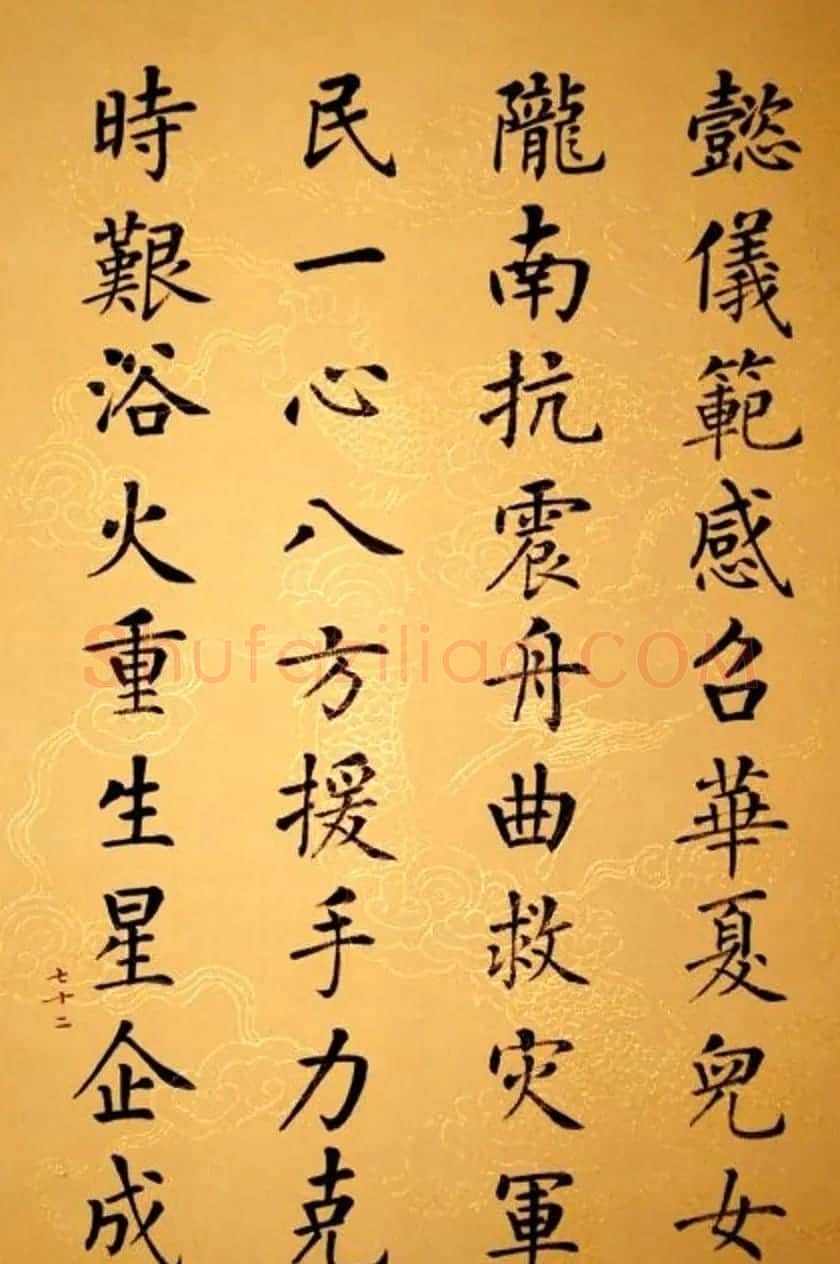 懿儀範感召華夏兒女
隴南抗震舟曲救灾軍
民一心八方援手力克
時艱浴火重生星企成
七十二
Shufaziliao.COM